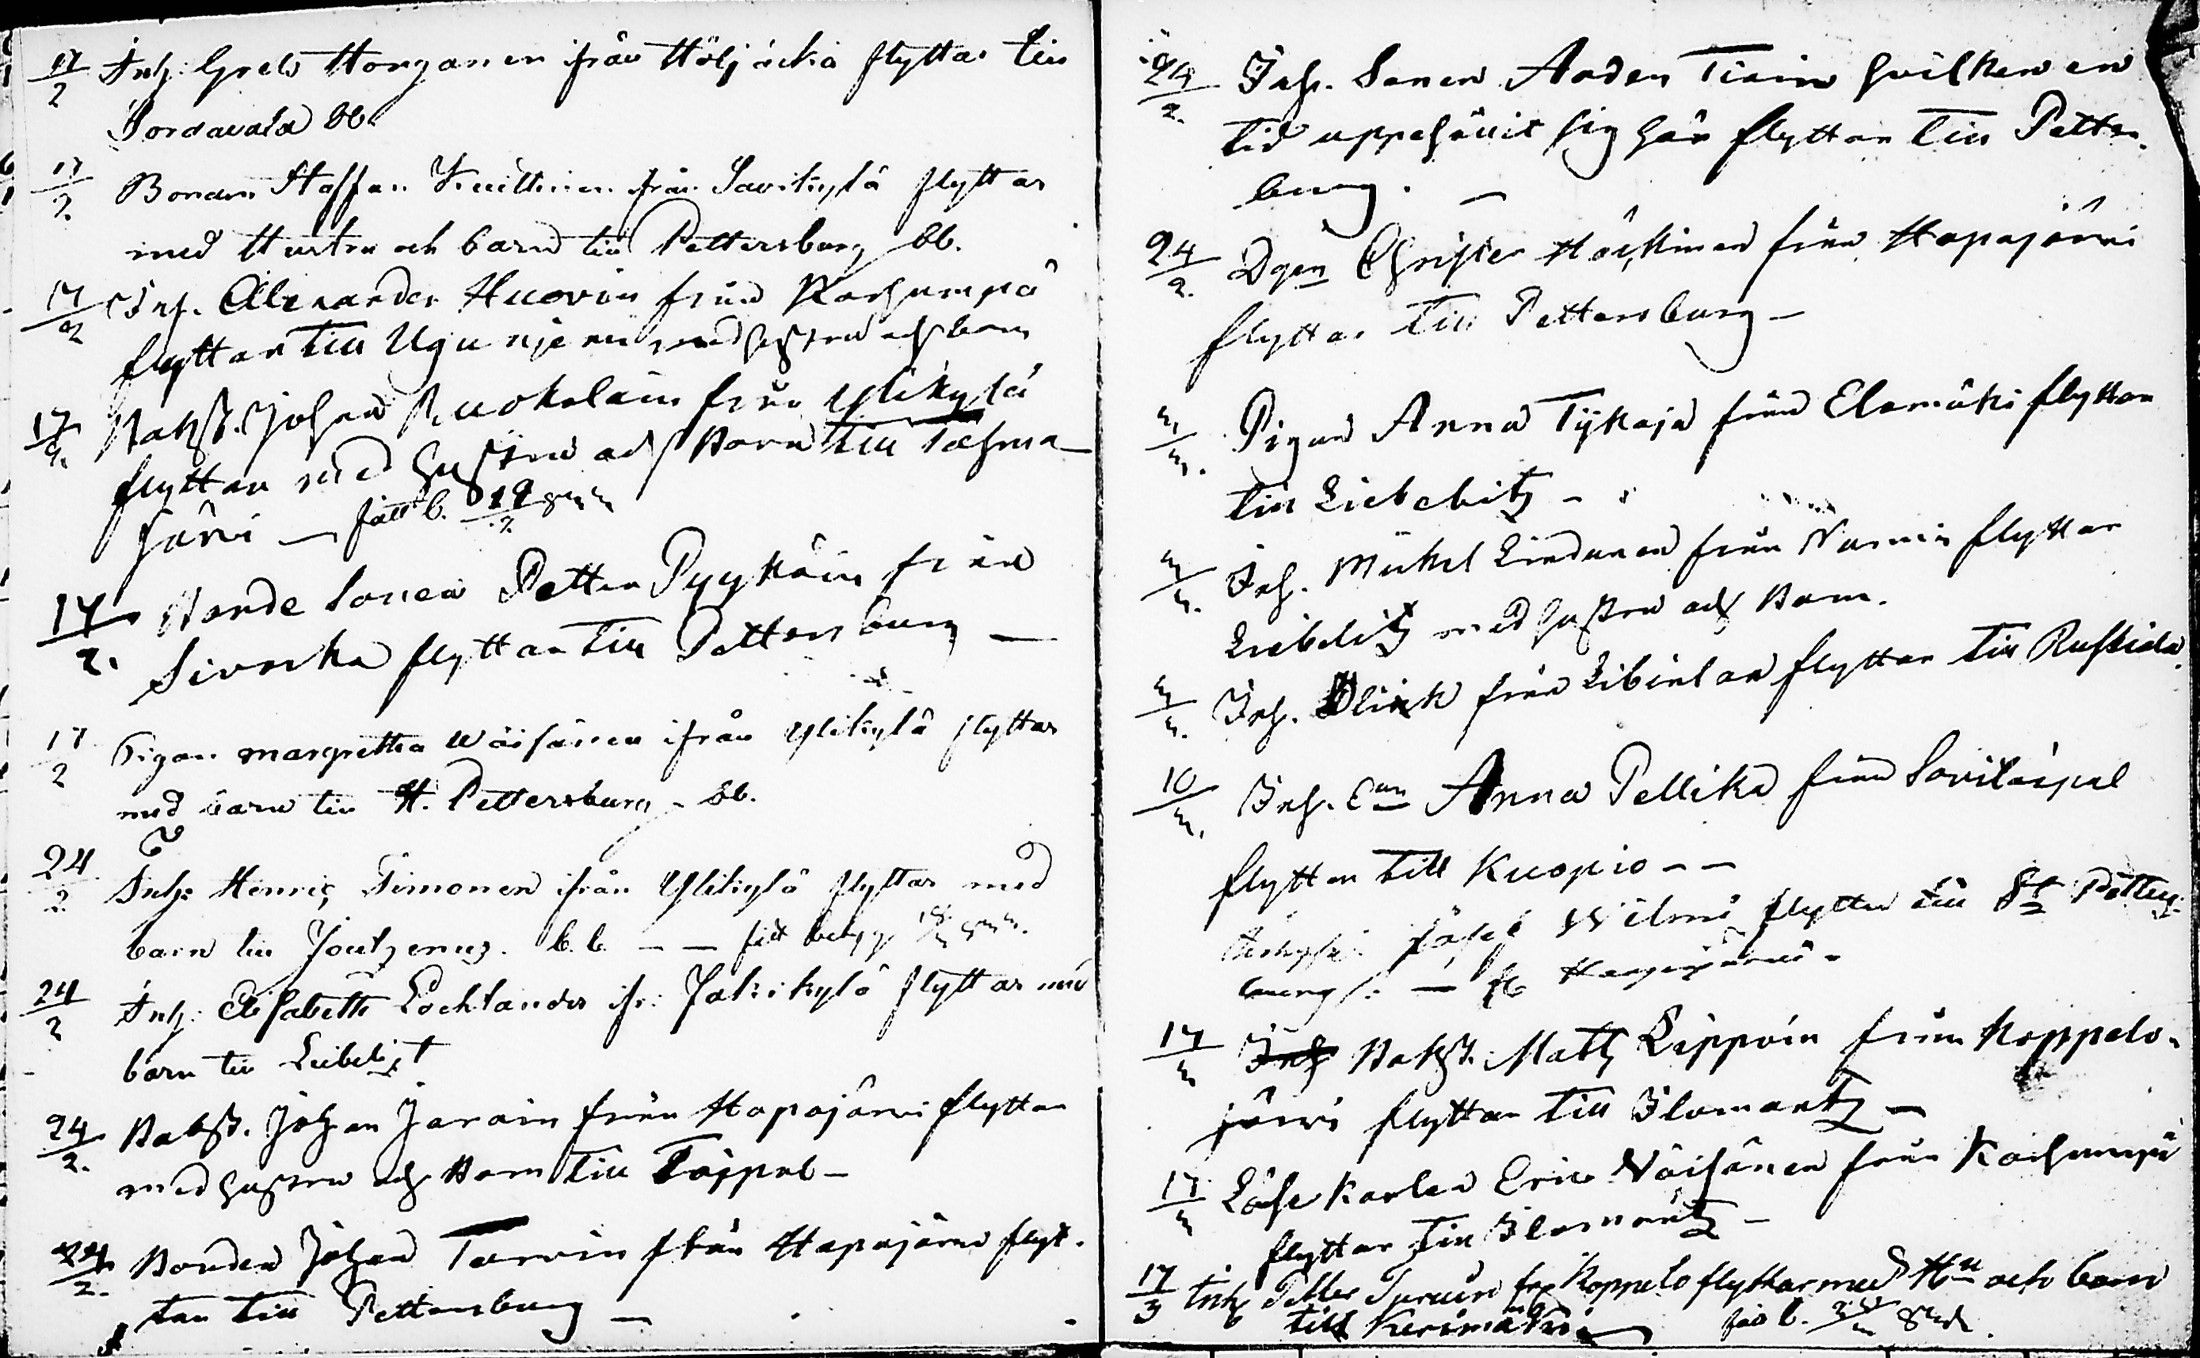 17/2 Inh: Greta Horganen ifrån Höljäckiä flyttar till
Sordavala bb.
17/2 Bonden Staffan Kuittinen från Savikylä flyttar
med Hustru och barn till Pettersburg bb.
17/2 Inh. Alexander Huovin från Karhunpä
flyttar till Ugunjemi med hustru och barn
17/2 Johan Ruokolain från Ylikylä
flyttar med hustru och Barn till Tohma-
järvi — fått b. 19/2
17/2. Bonde Sonen Petter Pyyköin från
Sivacka flyttar till Pettersburg —
17/2 Pigan Margretha Wäisänen ifrån Ylikylä flyttar
med barn till St. Pettersburg - bb.
24/2 Inh: Henric Timonen ifrån Ylikylä flyttar med
barn till Joutzenus. b.b — — fått
24/2 Inh: Elisabeth Lochlander ifr: Jokikylä flyttar med
barn till Liebelizt
24/2. Johan Jaroin från Hapajärvi flyttar
med hustru och Barn till Taipal —
24/2. Bonden Johan Tarvin från Hapajärvi flyt-
tar till Pettersburg —
24/2. Inh. Sonen Anders Tiain hvilken en
tid uppehållit sig här flyttar till Petters-
burg. —
24/2. Dgen Christer Häckinen från Hapajärvi
flyttar till Pettersburg —
3/3. Pigan Anna Tykaja från Elomäki flyttar
till Liebelitz —
3/3. Inh. Mickel Lindunen från Nurmis flyttar
Liebelitz med hustru och Barn.
3/3. Inh. från flyttar till Ruskiala.
10/3. Inh. Anna Pellika från Savitaipal
flyttar till Kuopio — —
Wilmi flyttar till St Petters-
burg — Hapajärvi.
17/3 Matts Lippoin från Koppelo-
järvi flyttar till Ilomantz —
17/3 Löse Karlen Eric Väisänen från Karhunpä
flyttar till Ilomantz —
17/3 Inh Petter Turuin Koppelo flyttar med Hu och barn
till Kerimäki fått b.